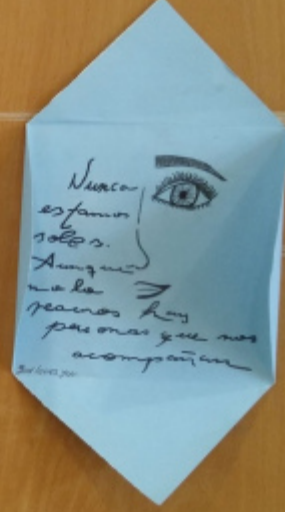 Nunca
estamos
solos.
Aunque
no lo
veamos hay
personas que nos
acompañan